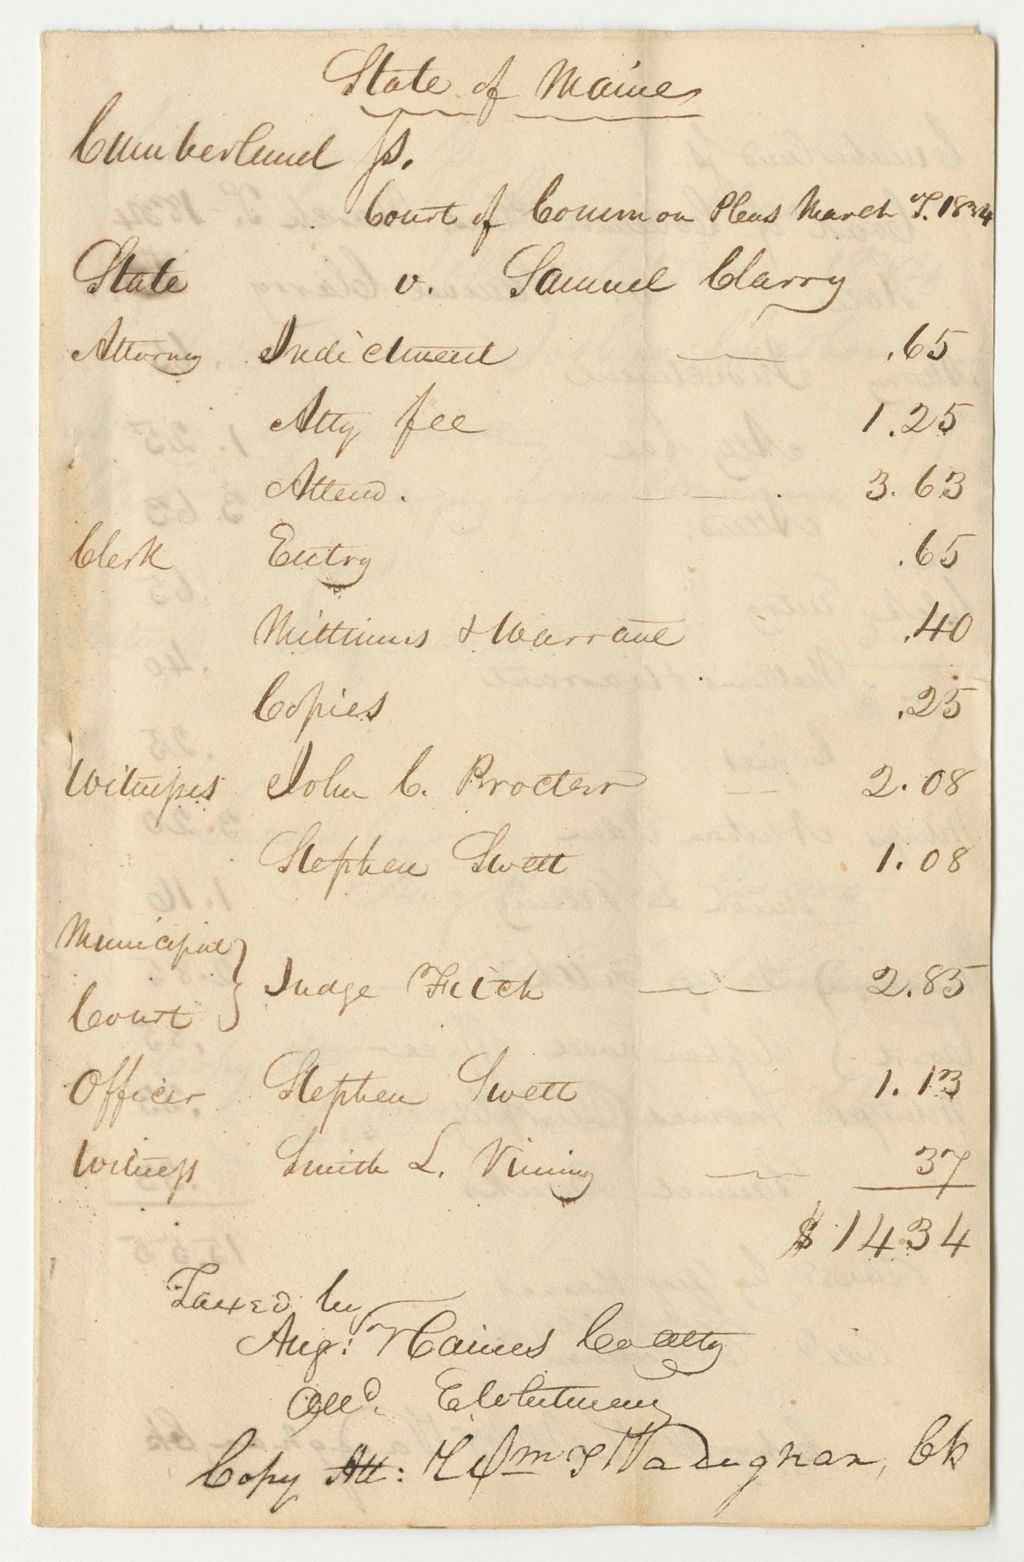 State of Maine
Cumberland ss.
Court of Common Pleas March T. 1834
State v. Samuel Clarry
Attorney Indictment .65
Atty fee 1.25
Attend. 3.63
Clerk Entry .65
Mittimus & Warrant .40
Copies .25
Witnesses John C. Procter 2.08
Stephen Swett 1.08
Municipal
Court } Judge Fitch 2.85
Officer Stephen Swett 1.13
Witness Smith L. Vining 37
$1434
Taxed by
Aug: Haines Co atty
All'd. E Whitman
Copy Att: Wm T Vaughan, Ck